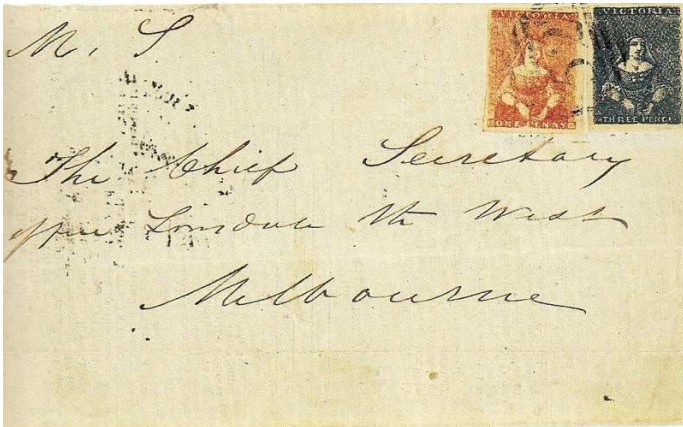 M. S
VICTORIA
ONE PENNY
VICTORIA
THREE PENCE
The Chief Secretary
Lonsdale West
Melbourne